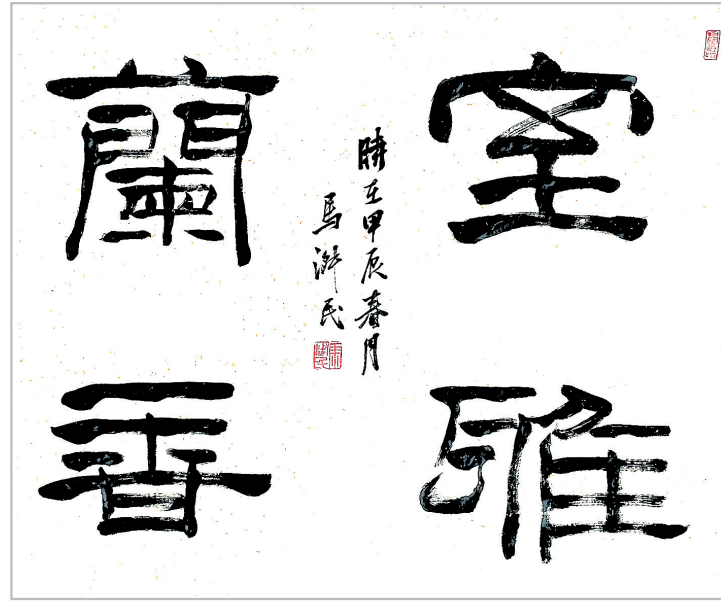 室雅
蘭香
時在甲辰春月
馬 民